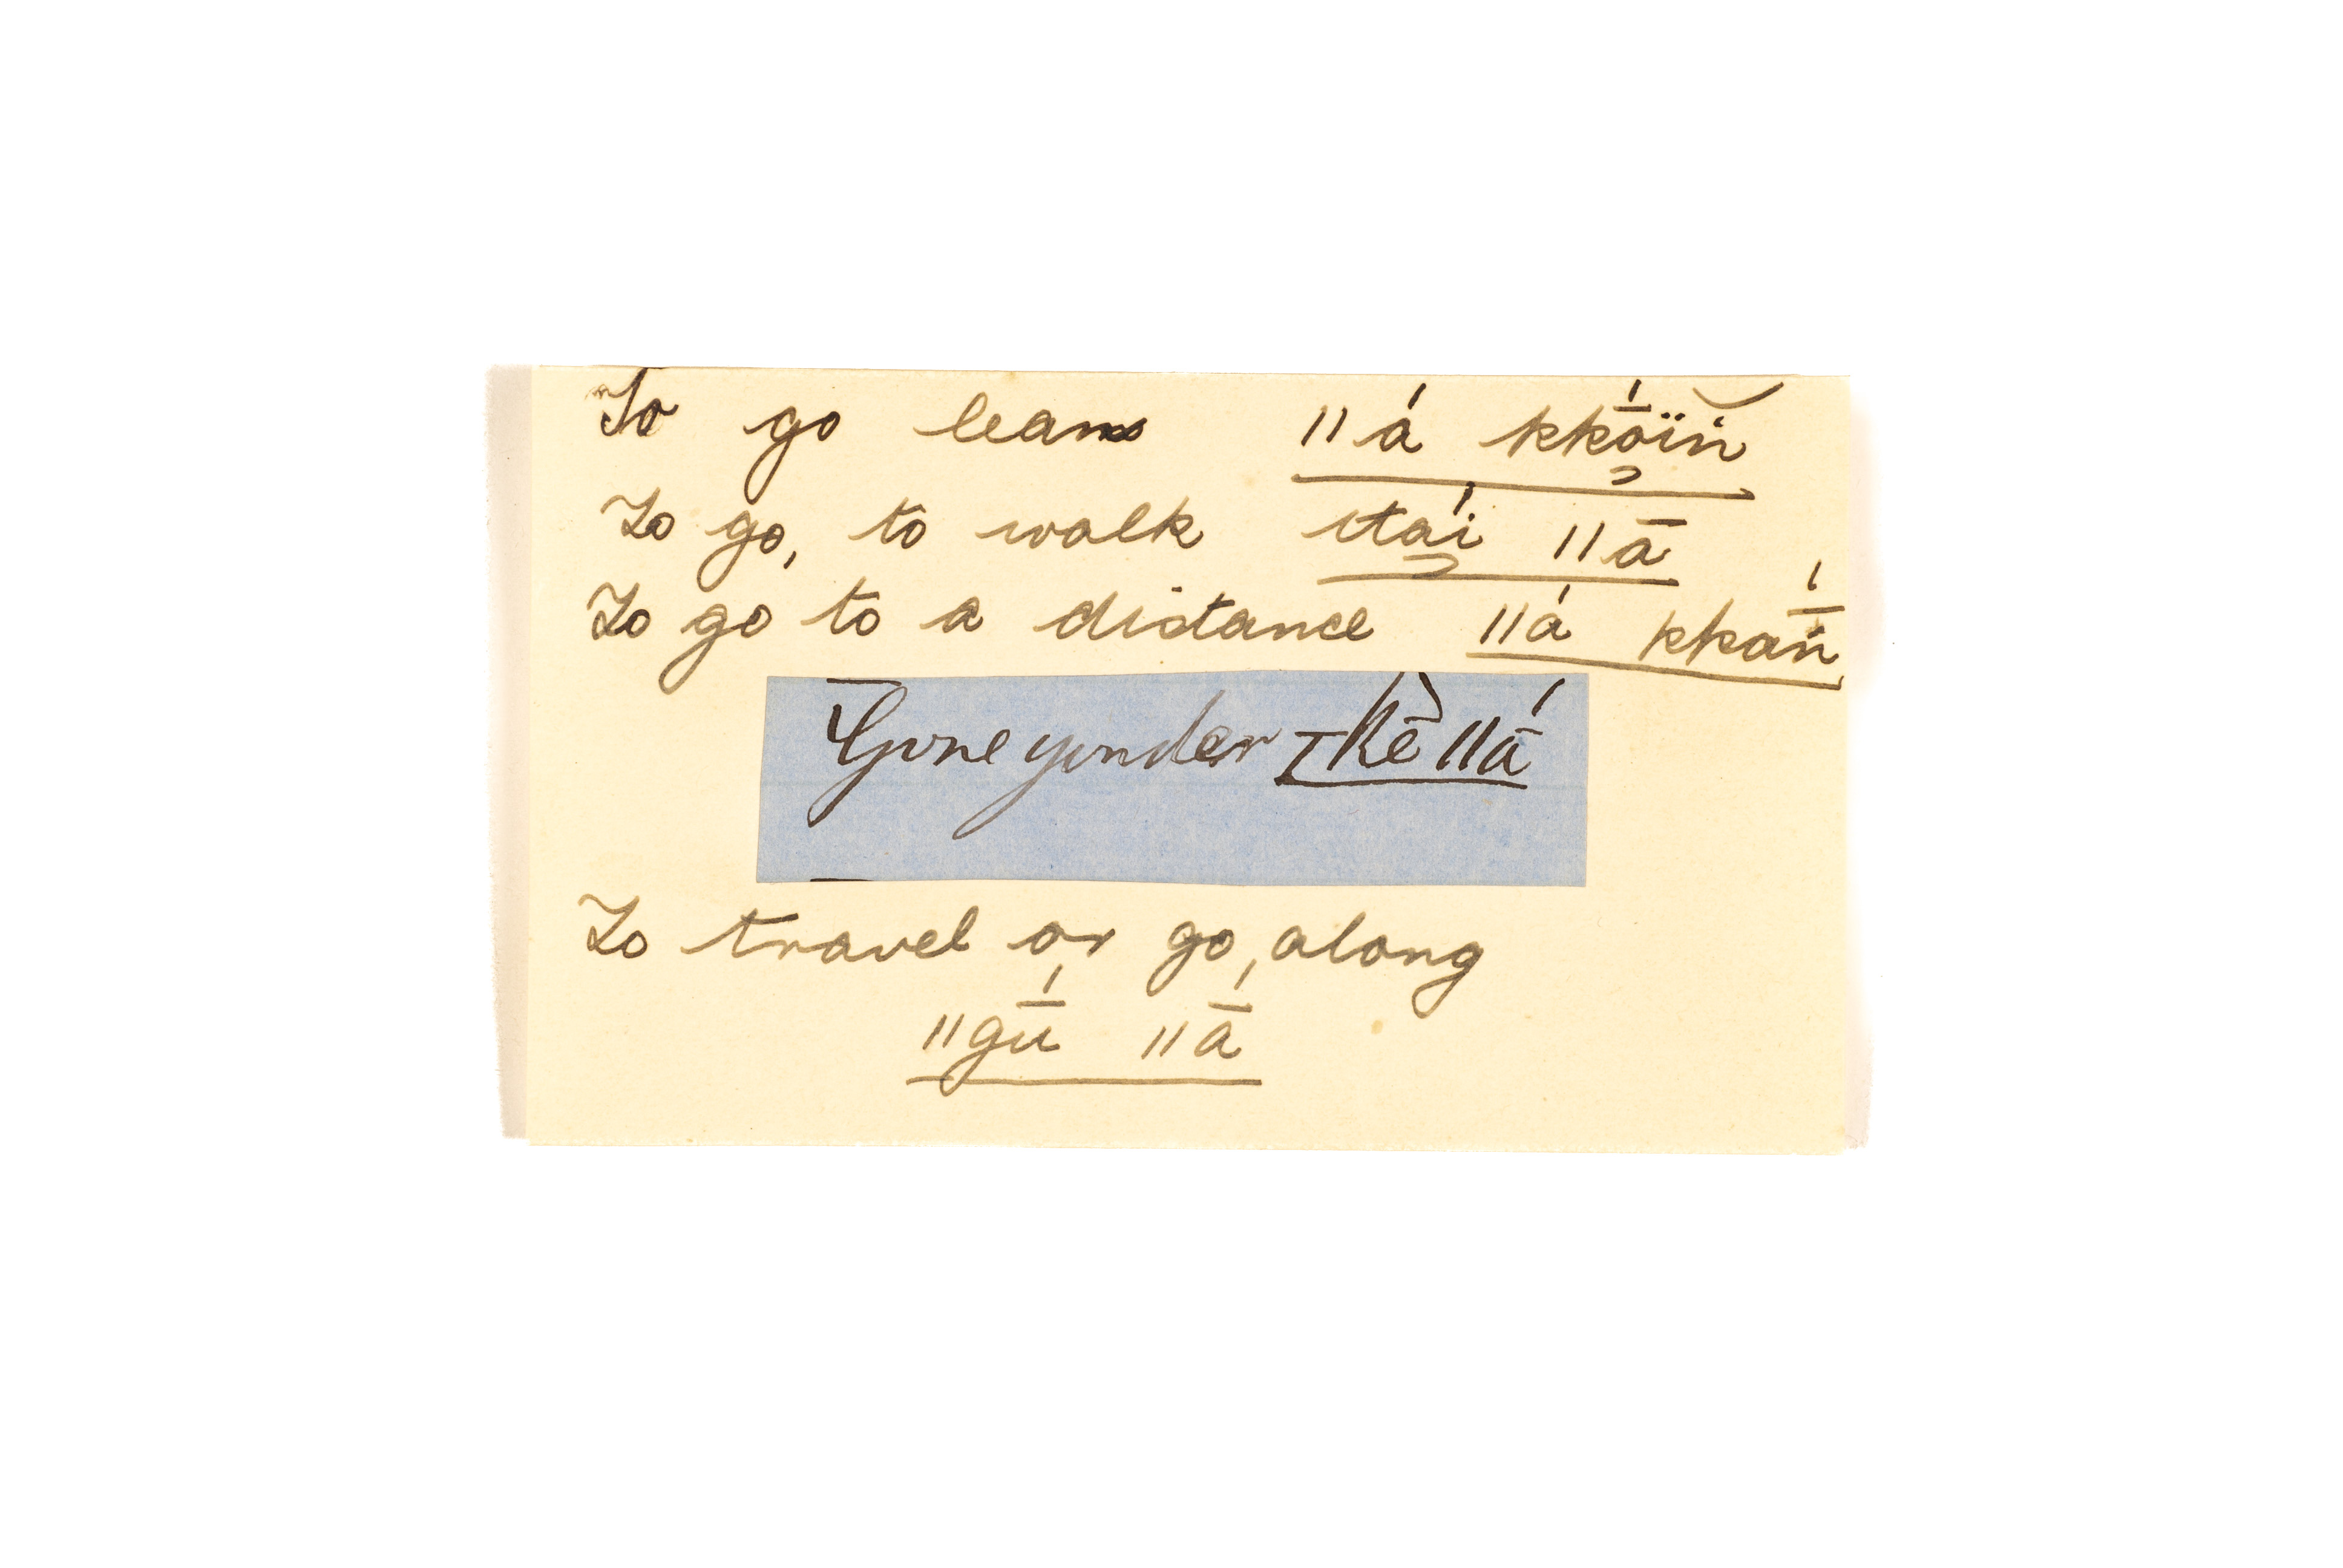 To go lean ǁá kkṓ̱ïṅ̆
To go, to walk ıtā́i̱ ǁā
To go to a distance ǁá kkaṅ̄́
Gone yonder I k̀é ǁā́
To travel or go, along
ǁgū́ ǁā́